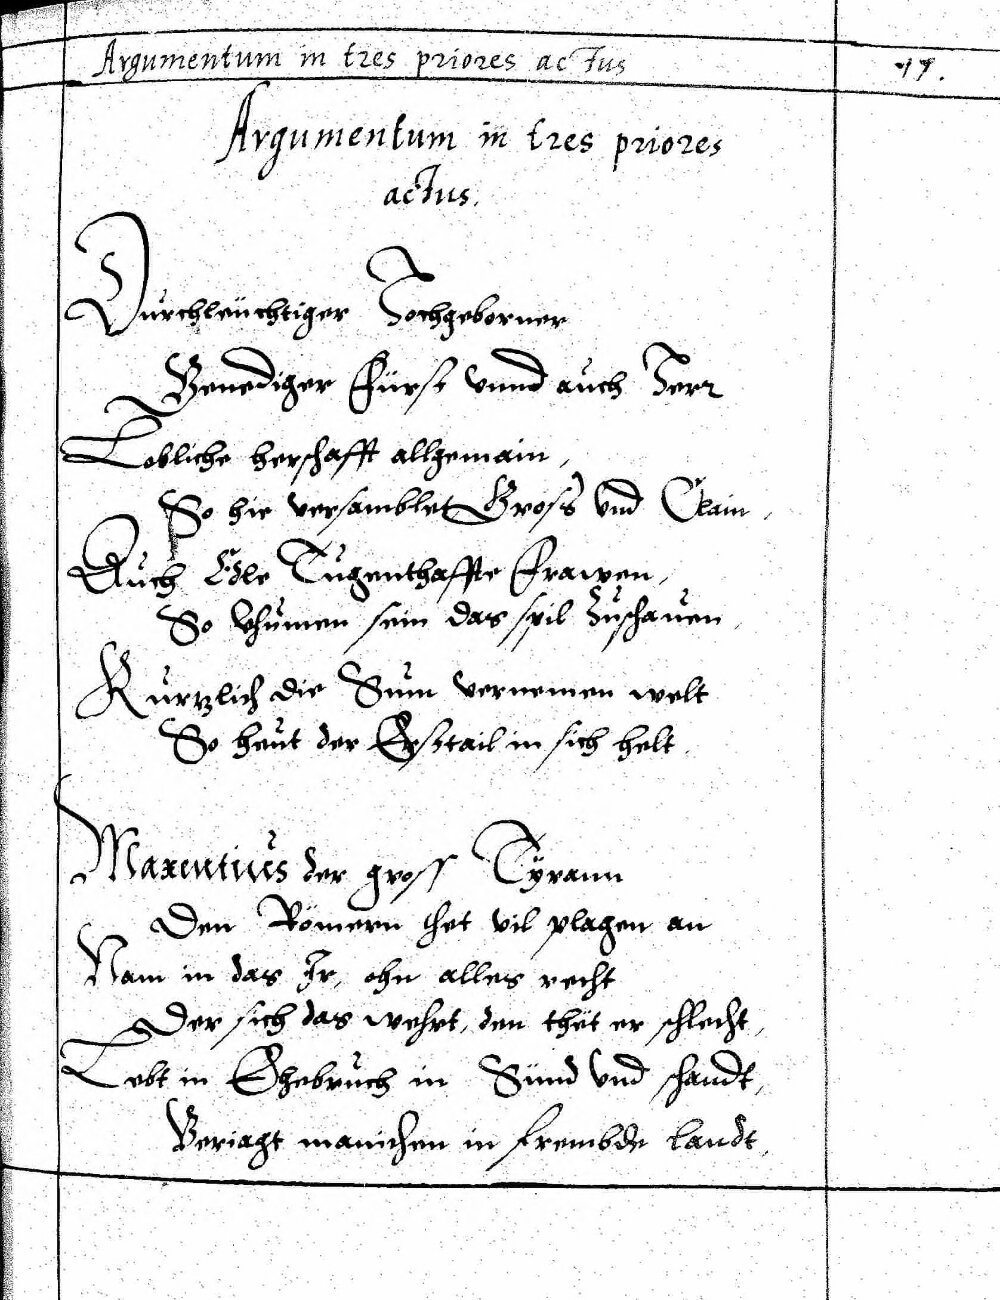 Argumentum in tres priores actus 17.
Argumentum in tres priores
actus.
Durchleüchtiger Hochgeborner
Genediger Fürst vnnd auch Herr
Lobliche herschafft allgemain,
So hie versamblet Gross vnd Clain,
Auch Edle Tugenthaffte Frawen,
So khumen sein das spil Zuschauen,
Kurtzlich die Sum vernemen welt
So heut der Erst tail in sich helt.
Maxentius der gross Tyrann
Den Römern thet vil plagen an
Nam in das Ir, ohn alles recht
Der sich das wehrt, den thet er schlecht,
Lebt in Ehebruch in Sünd vnd schandt,
Veriagt manichen in frembde Landt,